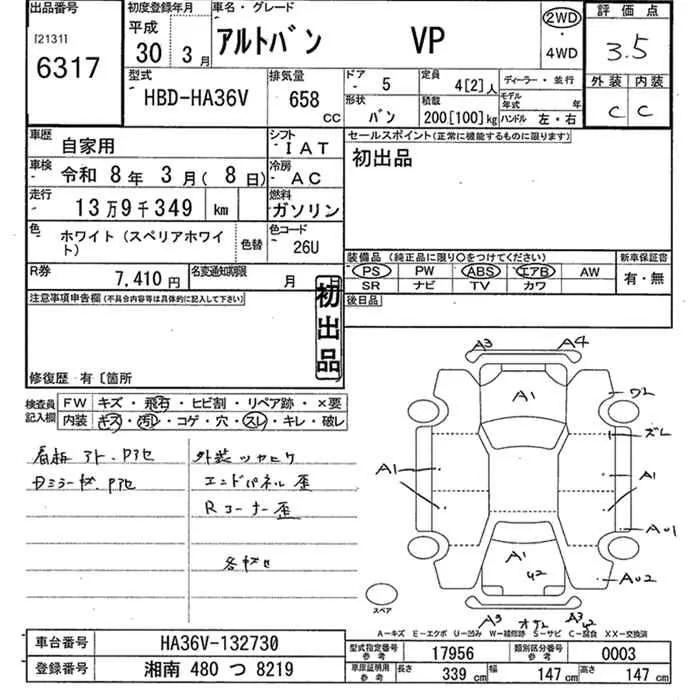 出品番号 初度登録年月 車名・グレード 2WD 評価点
[2131] 平成 アルトバン VP ・ 3.5
6317 30 3月 4WD
型式 排気量 ドア 5 定員 4[2]人 ディーラー・並行 外装 内装
HBD-HA36V 658 CC 形状 バン 積載 200[100]kg モデル年式 年 C C
ハンドル 左・右
車歴 自家用 シフト IAT セールスポイント(正常に機能するものに限ります)
車検 令和 8年 3月( 8日) 冷房 AC 初出品
走行 13万9千349 km 燃料 ガソリン
色 ホワイト(スペリアホワイト) 色替 色コード 26U
装備品(純正品に限り○をつけてください) 新車保証書
PS PW ABS エアB AW 有・無
SR ナビ TV カワ
R券 7,410円 名変通知期限 月 日
後日品
注意事項申告欄(不具合内容等は具体的に記入して下さい)
初出品
修復歴 有〔箇所
検査員記入欄 FW キズ・飛石・ヒビ割・リペア跡・×要
内装 キズ・汚レ・コゲ・穴・スレ・キレ・破レ
看板アト.P穴 外装ツヤヒケ
エンドパネル歪
Rコーナー歪
各キズ
A3 A4
A1 ワレ
ズレ
A1 A1
AU1
A1 U2 AU2
スペア
A3 A3 U2
A-キズ E-エクボ U-凹み W-補修跡 S-サビ C-腐食 XX-交換済
車台番号 HA36V-132730 型式指定番号 参考 17956 類別区分番号 参考 0003
登録番号 湘南 480 つ 8219 車庫証明用 参考 長さ 339 cm 幅 147 cm 高さ 147 cm